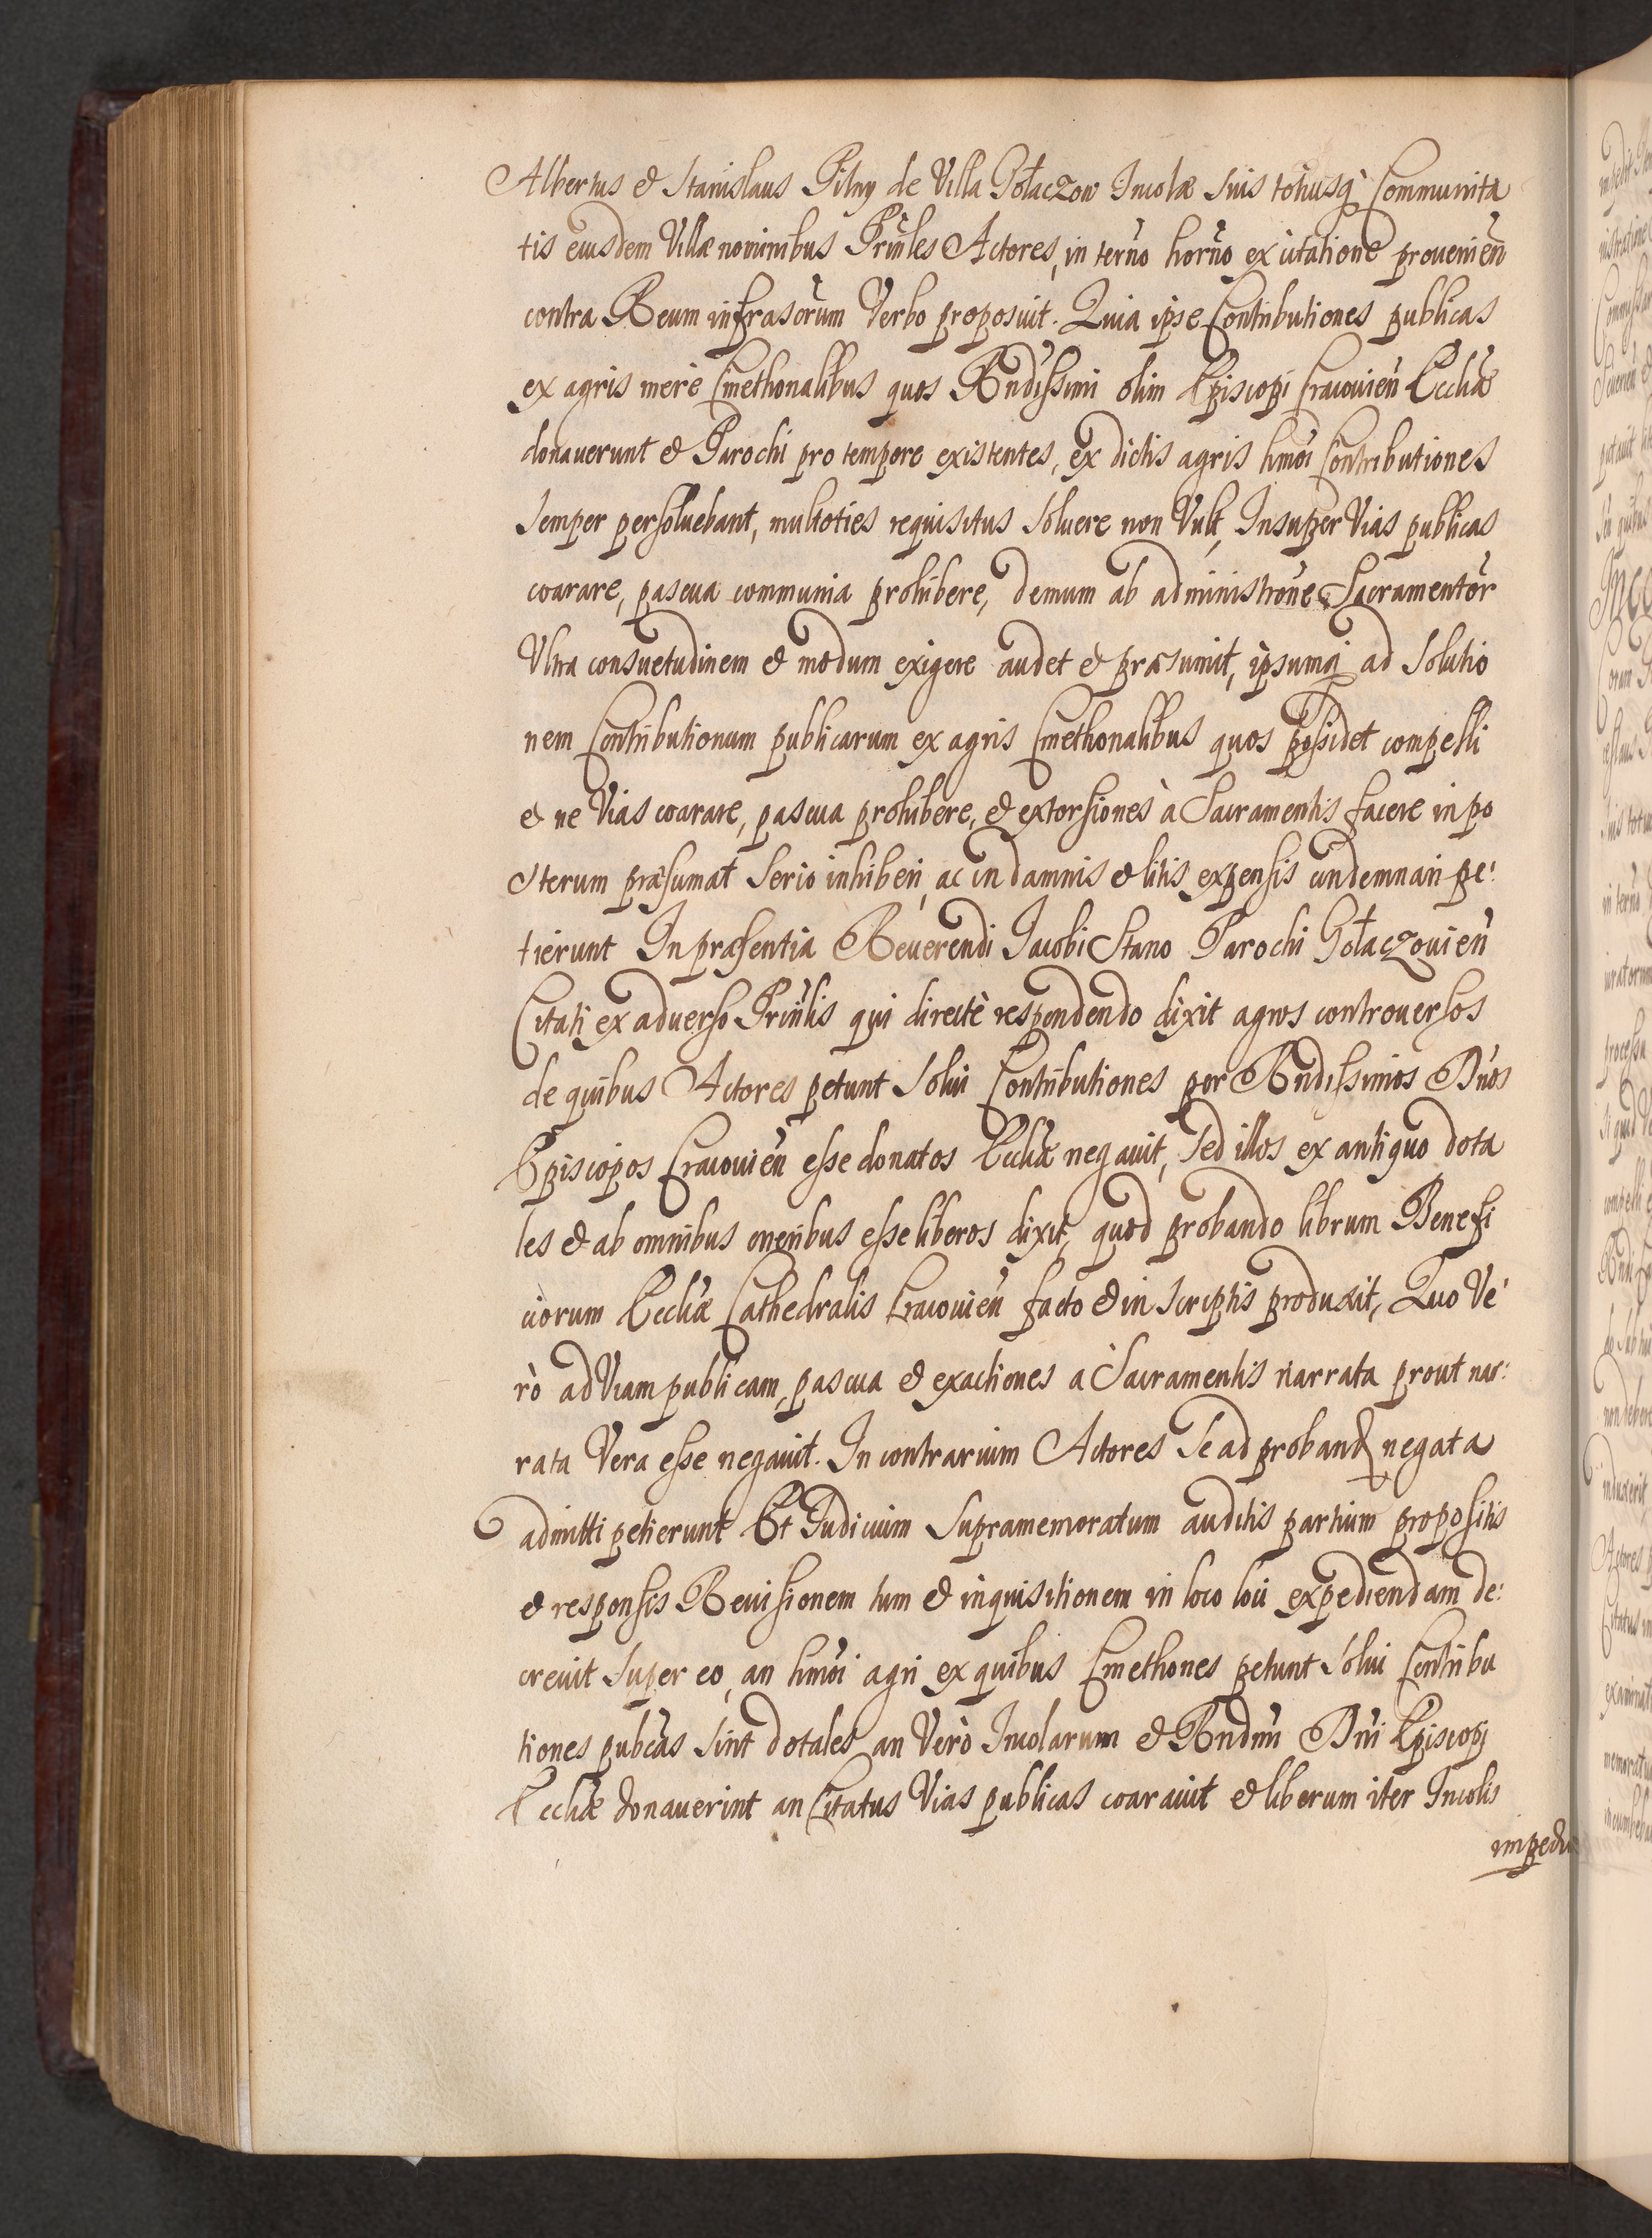 Albertus & Stanislaus Pilny de Villa Gołaczow Incolæ suis totiusq̀ Communita
tis eiusdem Villæ nominibus Prin̄les Actores, in term̄o hor̄no ex citatione provenien̄
contra Reum infrascr̄um Verbo proposuit. Quia ipse Contributiones publicas
ex agris merè Cmethonalibus quos Rnd̄issimi olim Episcopi Cracouien̄ Eccliæ
donauerunt & Parochi pro tempore existentes, ex dictis agris hm̄oi Contributiones
semper persoluebant, multoties requisitus soluere non Vult, Insuper Vias publicas
coarare, pascua communia prohibere, demum ab administrōne Sacramentor̄
Vltra consuetudinem & modum exigere audet & præsumit, ipsumq̀ ad solutio
nem Contributionum publicarum ex agris Cmethonalibus quos possidet compelli
& ne Vias coarare, pascua prohibere, & extorsiones à Sacramentis facere in po
sterum præsumat serio inhiberi, ac in damnis & litis expensis condemnari pe:
tierunt In præsentia Reuerendi Jacobi Stano Parochi Gołaczouien̄
Citati ex aduerso Prin̄lis qui directè respondendo dixit agros controuersos
de quibus Actores petunt solui Contributiones per Rnd̄issimos Dn̄os
Episcopos Cracouien̄ esse donatos Eccliæ negauit, sed illos ex antiquo dota
les & ab omnibus oneribus esse liberos dixit, quod probando librum Benefi
ciorum Eccliæ Cathedralis Cracouien̄ facto & in scriptis produxit, Quo Ve
rò ad Viam publicam, pascua & exactiones à Sacramentis narrata prout nar:
rata Vera esse negauit. In contrarium Actores se ad proband negata
admitti petierunt Et Judicium supramemoratum auditis partium propositis
& responsis Reuisionem tum & inquisitionem in loco loci expediendam de:
creuit super eo, an hm̄oi agri ex quibus Cmethones petunt solui Contribu
tiones pubc̄as sint dotales an Verò Incolarum & Rndm̄i Dn̄i Episcopi
Eccliæ donauerint an Citatus Vias publicas coarauit & liberum iter Incolis